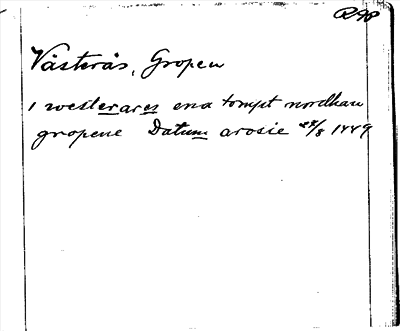 Västerås, Gropen
i westerares ena tompt nordhan
gropene Datum arosie /8 1449